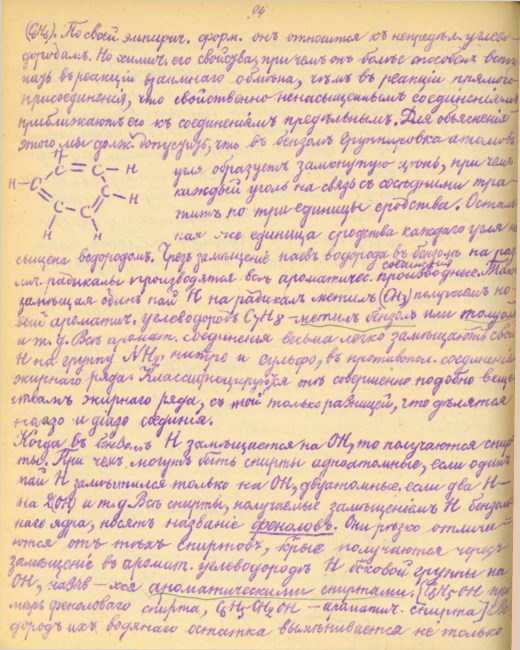 94
(C6H6). По своей эмпирич. форм. онъ относится къ непредѣл. углево-
дородамъ. Но химич. его свойства, при чемъ онъ болѣе способен всту-
пать въ реакціи взаимнаго обмѣна, чѣмъ въ реакціи прямого
присоединенія, что свойственно ненасыщеннымъ соединеніямъ
приближаютъ его къ соединеніямъ предѣльнымъ. Для объясненія
этого мы долж. допустить, что въ бензолѣ группировка атомовъ
H
H H
H H
H
угля образуетъ замкнутую цѣпь, при чемъ
каждый уголь на связь съ сосѣдними тра-
титъ по три единицы сродства. Осталь-
ная же единица сродства каждаго угля на-
сыщена водородомъ. Чрезъ замѣщеніе паевъ водорода въ бензолѣ на раз-
соединенія
лич. радикалы производятся всѣ ароматичес. производнее. Такъ
замѣщая одинъ пай H на радикалъ метилъ (CH3) получаемъ но-
вый ароматич. углеводородъ C7H8 - метилъ бензолъ или толуолъ
и т. д. Всѣ аромат. соединенія весьма легко замѣщаютъ свой
H на группу NH2, нитро и сульфо, въ противопол. соединеніямъ
жирнаго ряда. Классифицируются они совершенно подобно веще-
ствамъ жирнаго ряда, съ той только разницей, что дѣлятся
на азо и діазо соединія.
Когда въ бензолѣ H замѣщается на OH, то получаются спир-
ты. При чемъ могутъ быть спирты одноатомные, если одинъ
пай H замѣстился только на OH, двуатомные, если два H-
на 2(OH) и т. д. Всѣ спирты, получаемые замѣщеніемъ H бензоль-
наго ядра, носятъ названіе феноловъ. Они рѣзко отлича-
ются отъ тѣхъ спиртовъ, к-рые получаются черезъ
замѣщеніе въ аромат. углеводородѣ H боковой группы на
OH, назыв-хся ароматическими спиртами. [C6H5OH при-
мѣръ феноловаго спирта, C6H5CH2OH - ароматич. спирта] Во-
дородъ ихъ водянаго остатка вымѣнивается не только